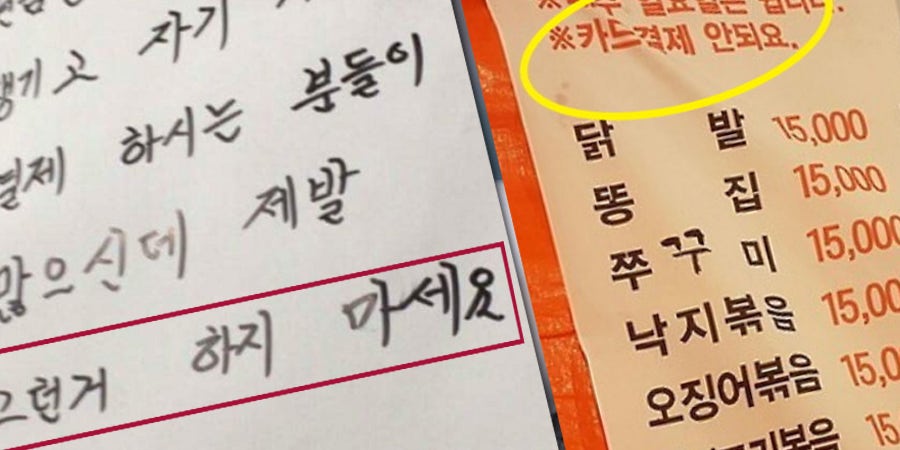 자기
챙기고
결제 하시는 분들이
많으신데 제발
그런거 하지 마세요
※카드결제 안되요.
닭 발 15,000
똥 집 15,000
쭈꾸미 15,000
낙지볶음 15,00
오징어볶음 15,0
볶음 15